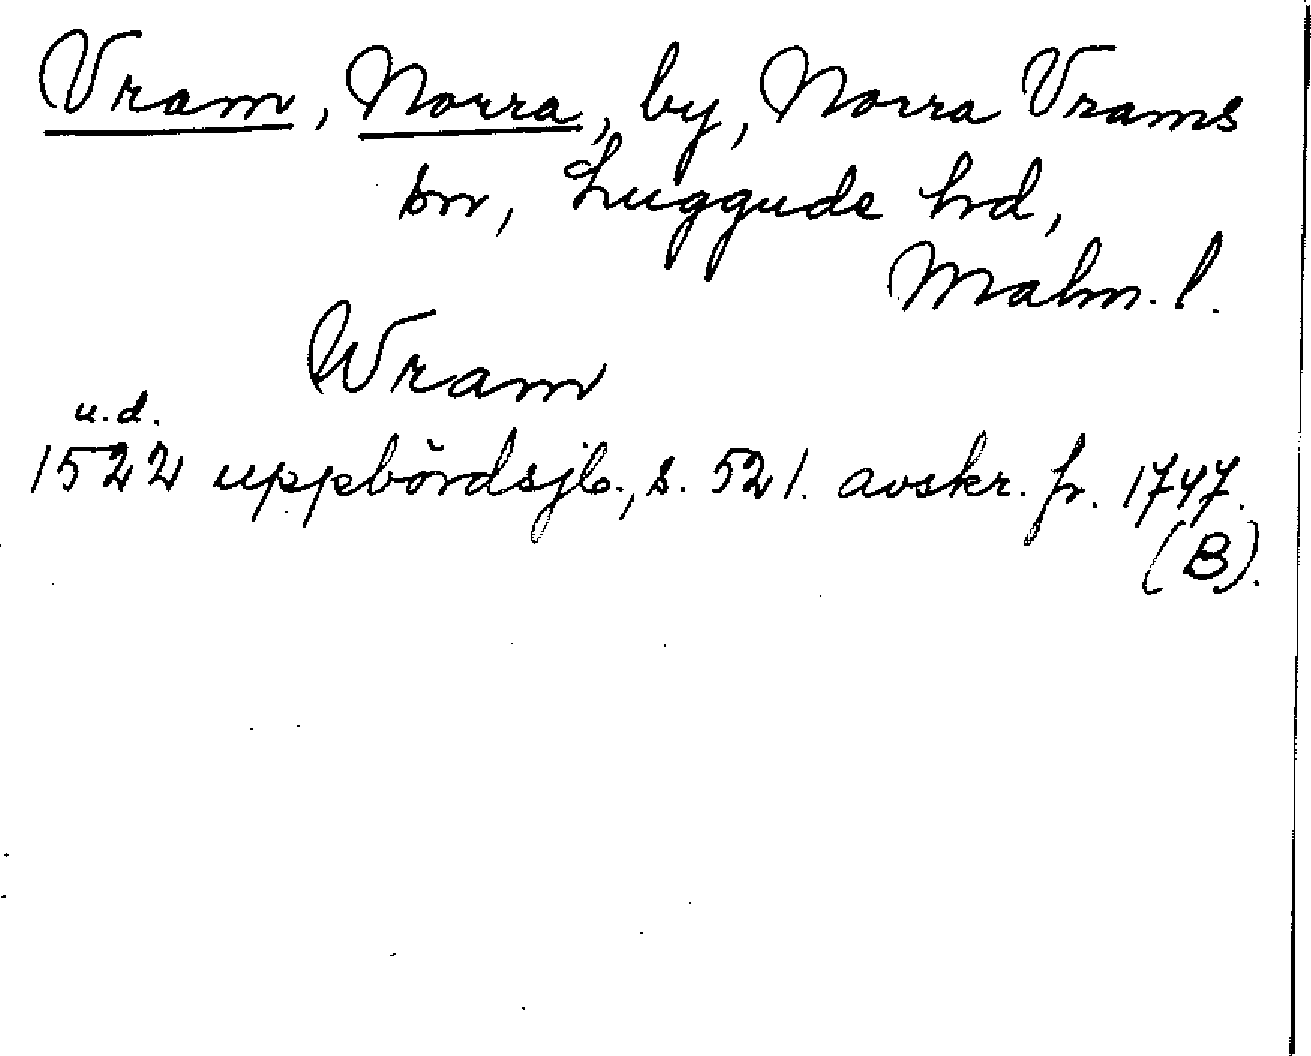 Vram, Norra, by, Norra Vrams
sn, Luggude hrd,
Malm. l.
Wram
u.d.
1522 uppbördsjb., s. 521. avskr. fr. 1747.
(B).